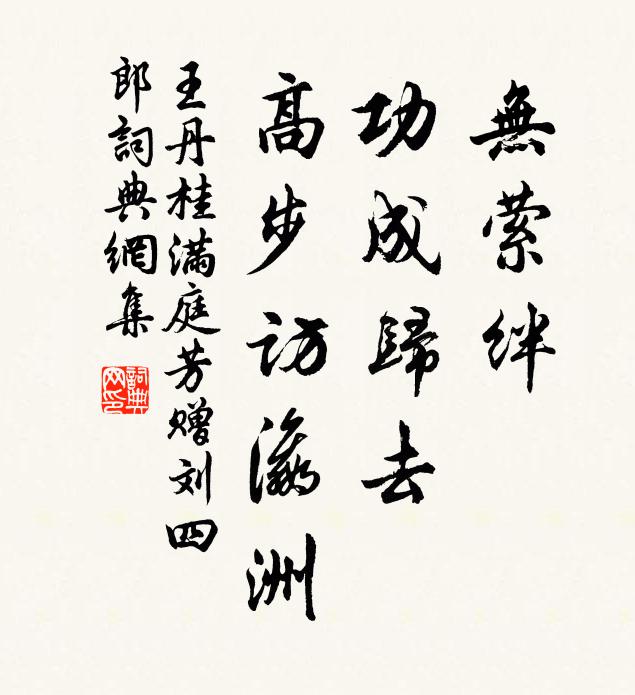 無萦絆
功成歸去
高步訪瀛洲
王丹桂满庭芳赠刘四
郎詞典網集
詞典网印